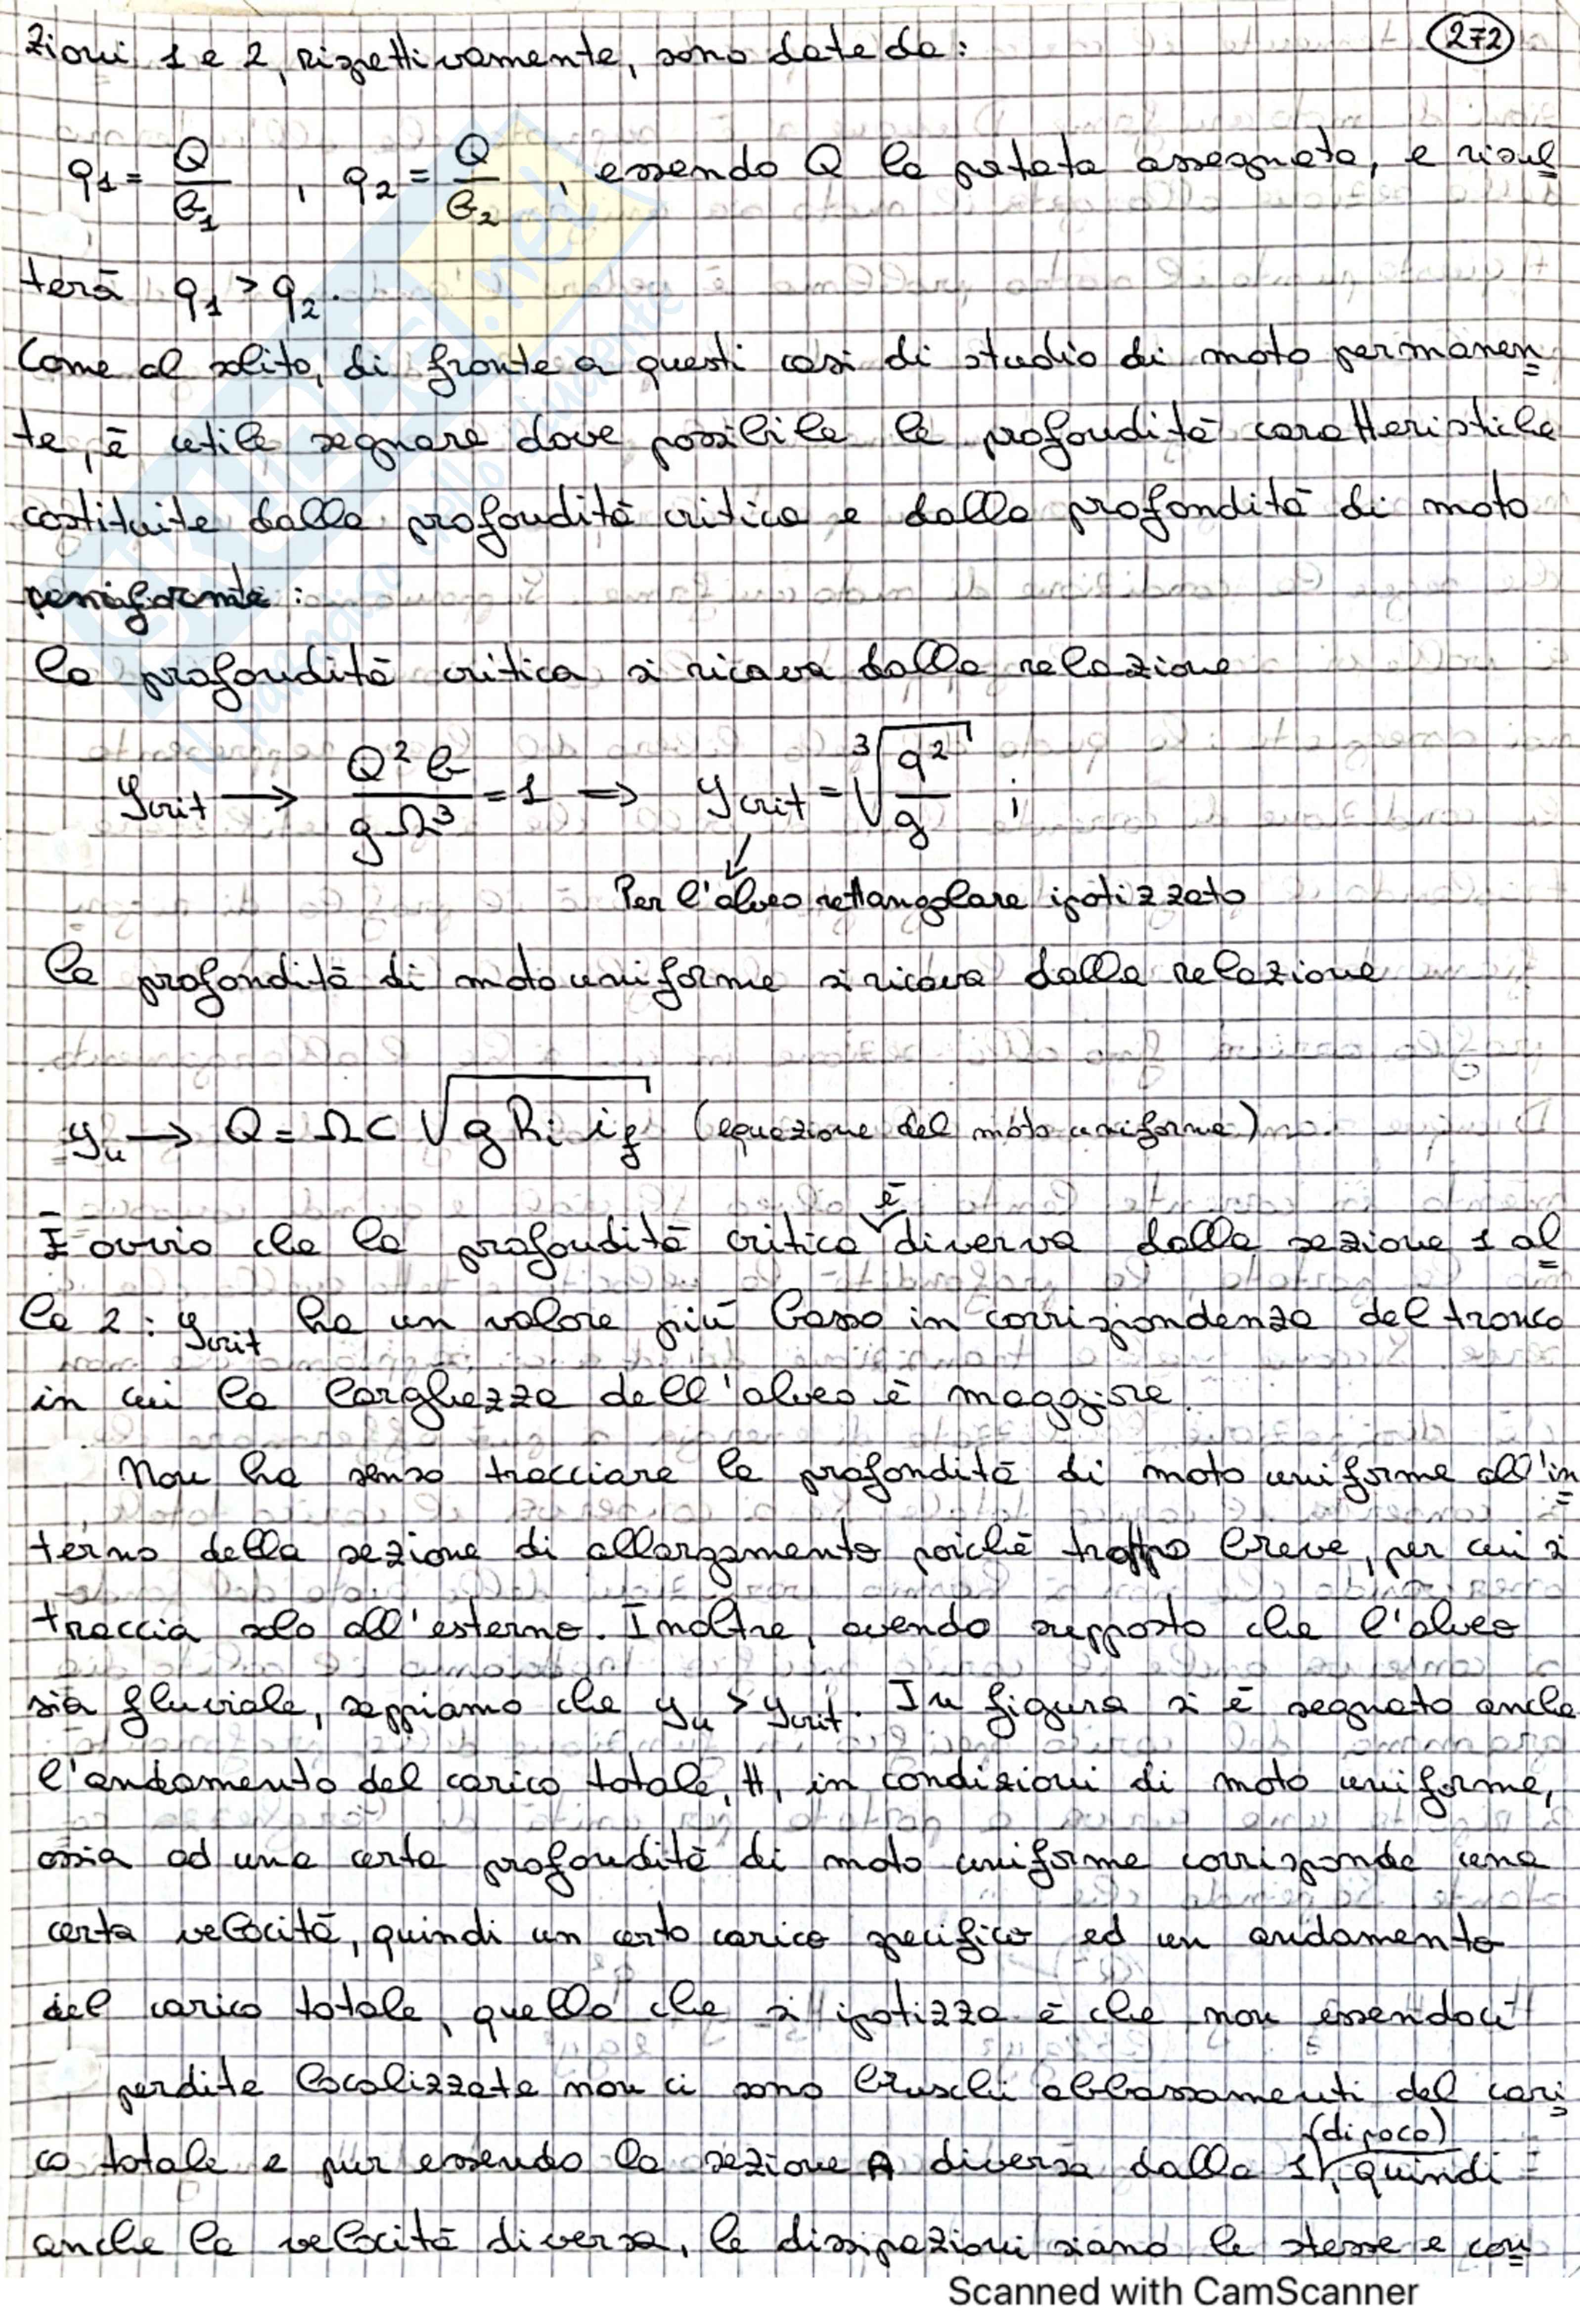 272
zioni 1 e 2, rispettivamente, sono date da:
q1 = Q/b1 , q2 = Q/b2 , essendo Q la portata assegnata, e risul
terà q1 > q2.
Come al solito, di fronte a questi casi di studio di moto permanen
te, è utile segnare dove possibile le profondità caratteristiche
costituite dalla profondità critica e dalla profondità di moto
uniforme:
la profondità critica si ricava dalla relazione
ycrit → Q² b / g Ω³ = 1 ⇒ ycrit = ³√(q²/g) ;
Per l'alveo rettangolare ipotizzato
la profondità di moto uniforme si ricava dalla relazione
yu → Q = Ω C √(g Ri if) (equazione del moto uniforme)
È ovvio che la profondità critica è diversa dalla sezione 1 al
la 2: ycrit ha un valore più basso in corrispondenza del tronco
in cui la larghezza dell'alveo è maggiore.
Non ha senso tracciare la profondità di moto uniforme all'in
terno della sezione di allargamento poiché troppo breve, per cui si
traccia solo all'esterno. Inoltre, avendo supposto che l'alveo
sia fluviale, sappiamo che yu > ycrit. In figura si è segnato anche
l'andamento del carico totale, H, in condizioni di moto uniforme,
ossia ad una certa profondità di moto uniforme corrisponde una
certa velocità, quindi un certo carico specifico ed un andamento
del carico totale, quello che si ipotizza è che non essendoci
perdite localizzate non ci sono bruschi abbassamenti del cari
co totale e pur essendo la sezione A diversa dalla 1 (di poco), quindi
anche la velocità diversa, le dissipazioni siano le stesse e con
Scanned with CamScanner